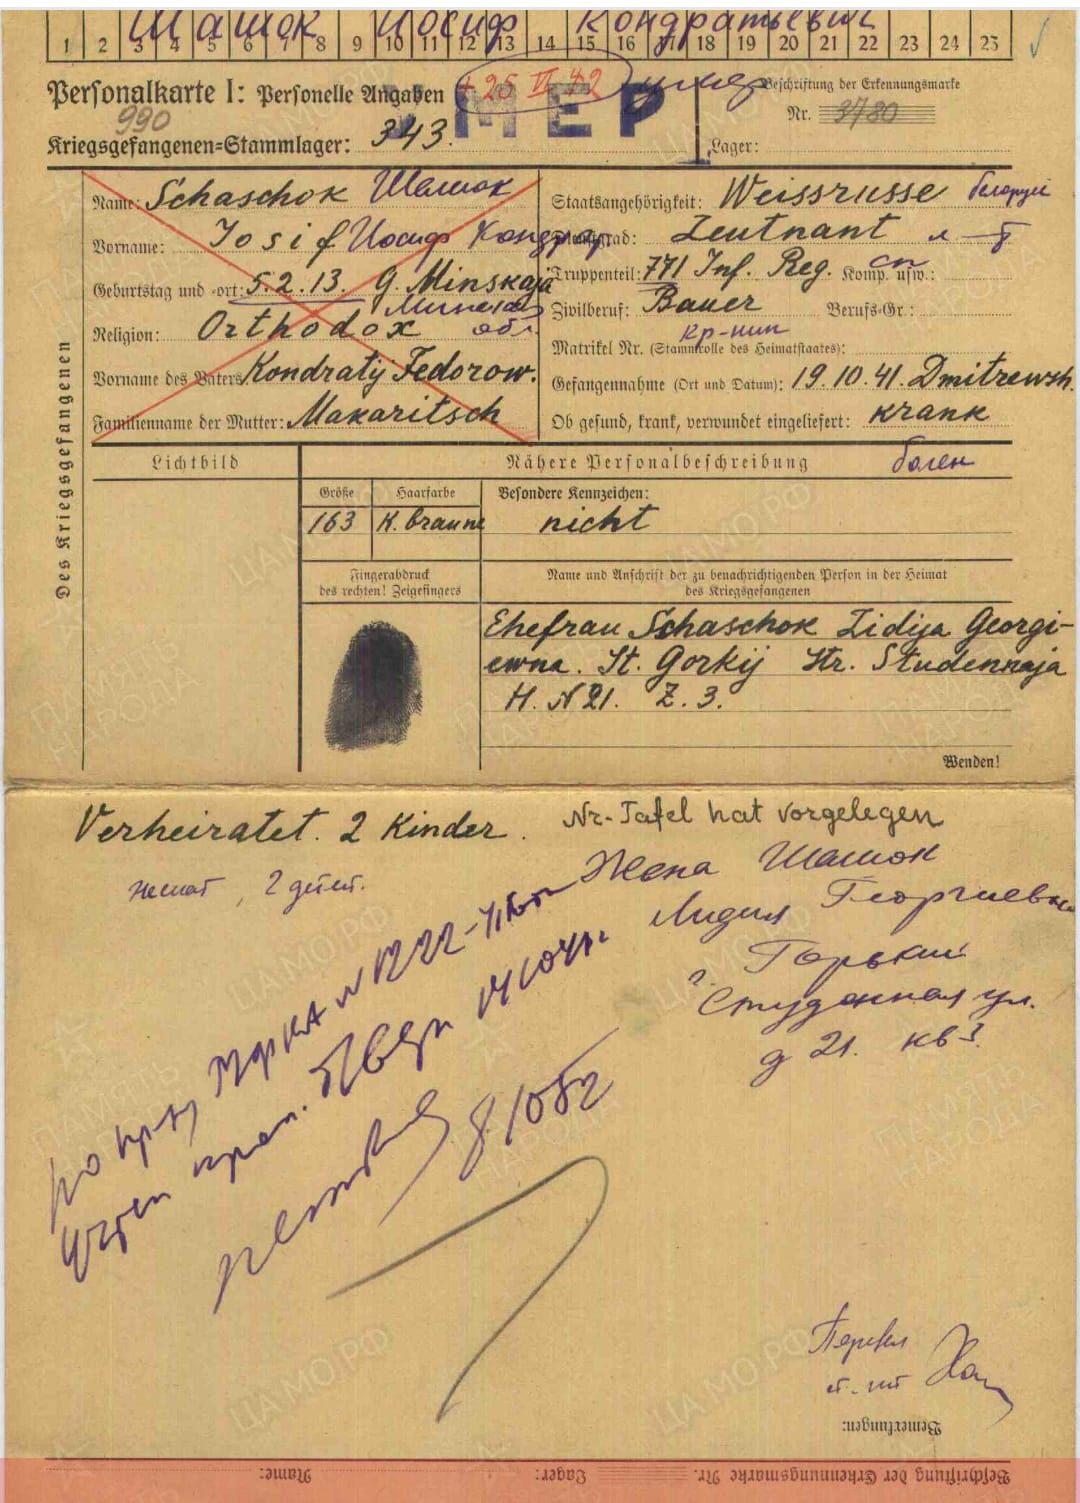 Шашок Иосиф Кондратьевич
1 2 3 4 5 6 7 8 9 10 11 12 13 14 15 16 17 18 19 20 21 22 23 24 25
Personalkarte I: Personelle Angaben
+ 25 VI 42 умер
УМЕР
990
Kriegsgefangenen=Stammlager: 343.
Beschriftung der Erkennungsmarke
Nr. 3780
Lager:
Des Kriegsgefangenen
Name: Schaschok Шашок
Vorname: Iosif Иосиф Кондрат.
Geburtstag und -ort: 5.2.13. G. Minskaja
Минская обл.
Religion: Orthodox
Vorname des Vaters: Kondratij Fedorow.
Familienname der Mutter: Makaritsch
Staatsangehörigkeit: Weissrusse белорус
Dienstgrad: Leutnant л-т
Truppenteil: 771 Inf. Reg. Komp. usw.: сп
Zivilberuf: Bauer Berufs-Gr.:
кр-нин
Matrikel Nr. (Stammrolle des Heimatstaates):
Gefangennahme (Ort und Datum): 19.10.41. Dmitrewsk.
Ob gesund, krank, verwundet eingeliefert: krank
болен
Lichtbild
Nähere Personalbeschreibung
Größe Haarfarbe Besondere Kennzeichen:
163 K. braune nicht
Fingerabdruck
des rechten! Zeigefingers
Name und Anschrift der zu benachrichtigenden Person in der Heimat
des Kriegsgefangenen
Ehefrau Schaschok Lidija Georgi-
ewna. St. Gorkij Str. Studennaja
H. N 21. Z. 3.
Wenden!
Verheiratet. 2 Kinder.
Nr-Tafel hat vorgelegen
женат, 2 детей.
Жена Шашок
Лидия Георгиевна
г. Горький
Студенная ул.
д 21. кв 3.
Перевел
Bemerkungen:
Beschriftung der Erkennungsmarke Nr. Lager: Name: